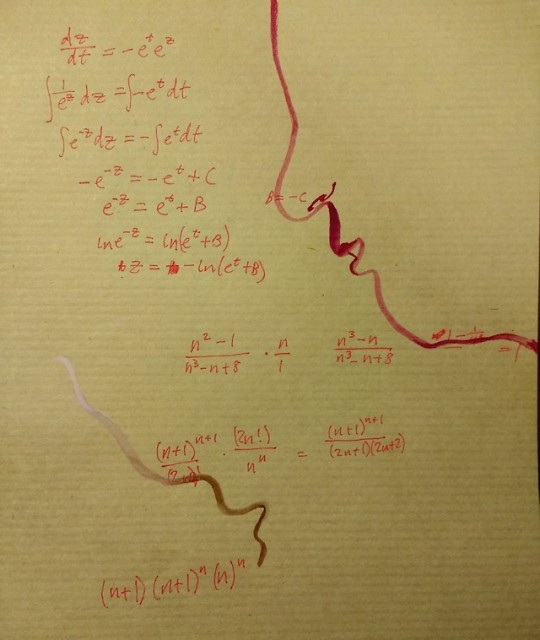 dz/dt = -e^t e^z
∫ 1/e^z dz = ∫ -e^t dt
∫ e^-z dz = -∫ e^t dt
-e^-z = -e^t + C
e^-z = e^t + B
B = -C
ln e^-z = ln(e^t + B)
z = -ln(e^t + B)
(n^2 - 1)/(n^3 - n + 8) · n/1
(n^3 - n)/(n^3 - n + 8)
(n+1)^(n+1) · (2n!)/n^n = (n+1)^(n+1)/((2n+1)(2n+2))
(n+1)(n+1)^n (n)^n